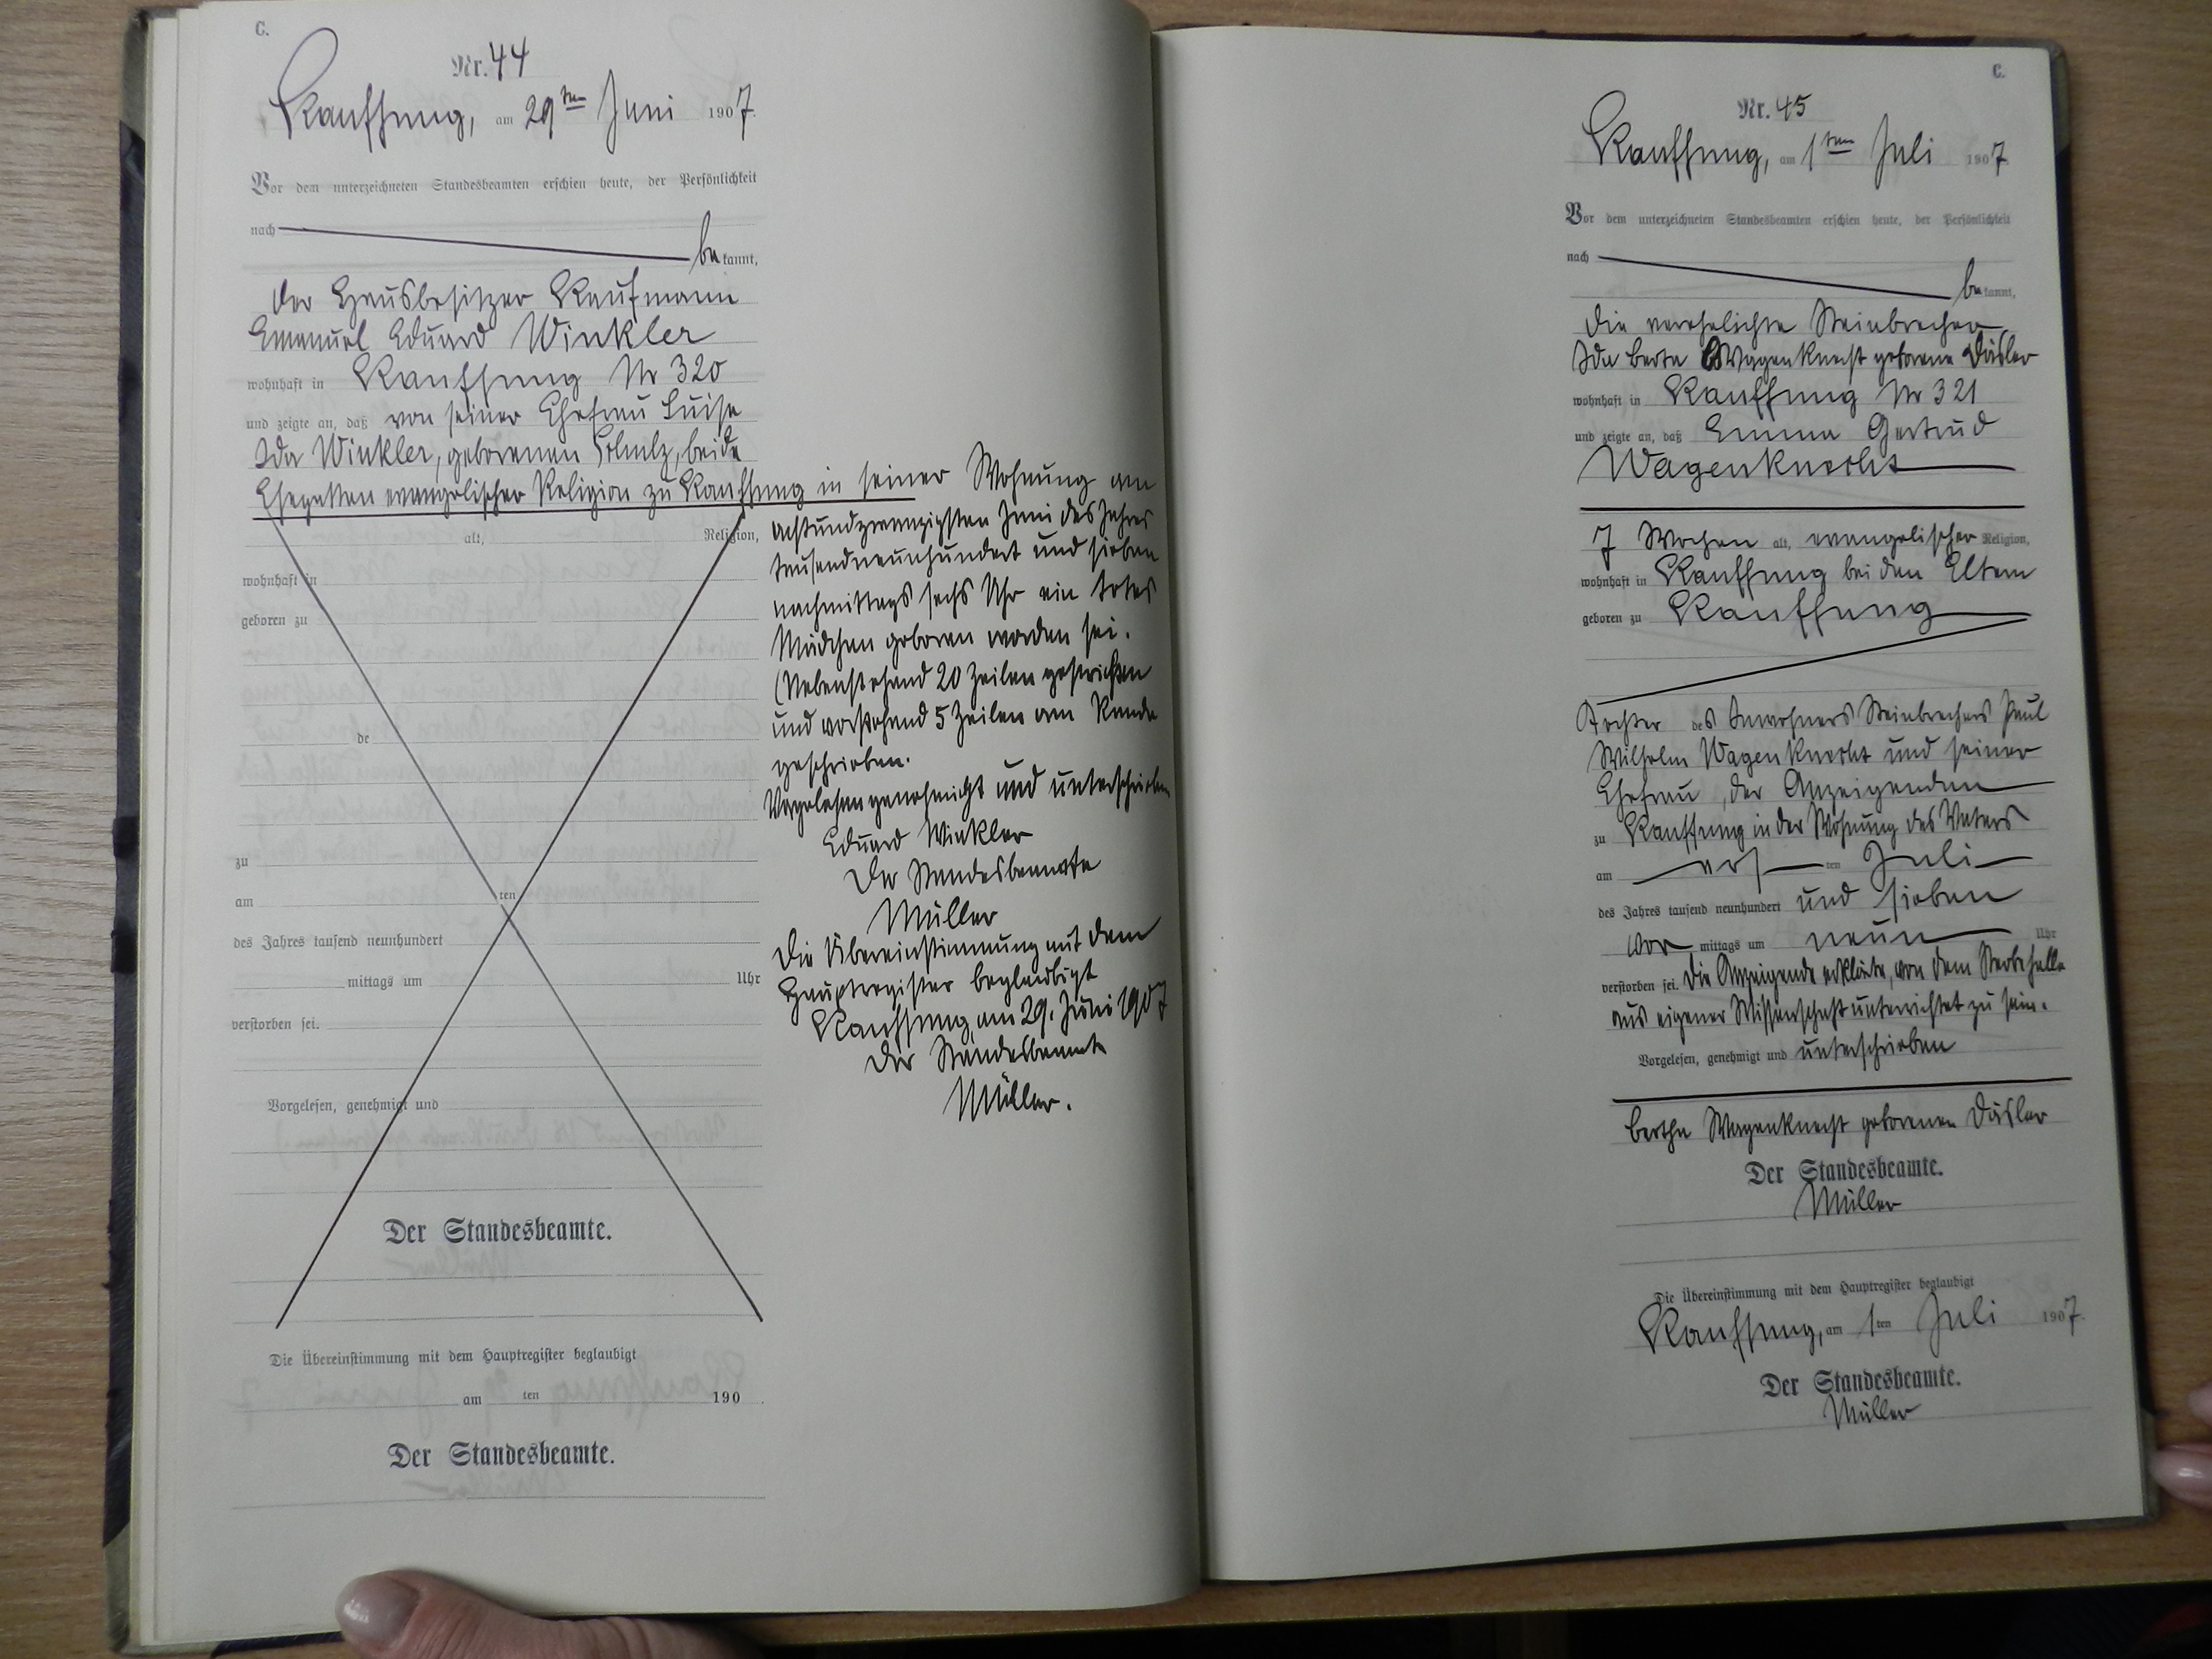 C.
Nr. 44
Kauffung, am 29ten Juni 1907.
Vor dem unterzeichneten Standesbeamten erschien heute, der Persönlichkeit
nach
bekannt,
der Hausbesitzer Kaufmann
Emanuel Eduard Winkler
wohnhaft in Kauffung Nr 320
und zeigte an, daß von seiner Ehefrau Luise
Ida Winkler, geborenen Scholz, beide
Ehegatten evangelischer Religion zu Kauffung in seiner Wohnung am
alt, Religion,
wohnhaft in
geboren zu
de
zu
am ten
des Jahres tausend neunhundert
mittags um Uhr
verstorben sei.
Vorgelesen, genehmigt und
Der Standesbeamte.
Die Übereinstimmung mit dem Hauptregister beglaubigt
am ten 190 .
Der Standesbeamte.
achtundzwanzigsten Juni des Jahres
tausendneunhundert und sieben
nachmittags sechs Uhr ein totes
Mädchen geboren worden sei.
(Nebenstehend 20 Zeilen gestrichen
und vorstehend 5 Zeilen am Rande
geschrieben.
Vorgelesen genehmigt und unterschrieben
Eduard Winkler
Der Standesbeamte
Müller
Die Übereinstimmung mit dem
Hauptregister beglaubigt
Kauffung, am 29. Juni 1907
Der Standesbeamte
Müller.
C.
Nr. 45
Kauffung, am 1ten Juli 1907
Vor dem unterzeichneten Standesbeamten erschien heute, der Persönlichkeit
nach
bekannt,
die verehelichte Steinbrecher
Ida Berta Wagenknecht geborene Däsler
wohnhaft in Kauffung Nr 321
und zeigte an, daß Emma Gertrud
Wagenknecht
7 Wochen alt, evangelischer Religion,
wohnhaft in Kauffung bei den Eltern
geboren zu Kauffung
Tochter des Inwohners Steinbrechers Paul
Wilhelm Wagenknecht und seiner
Ehefrau, der Anzeigenden
zu Kauffung in der Wohnung des Vaters
am ersten Juli
des Jahres tausend neunhundert und sieben
vor mittags um neun Uhr
verstorben sei. Die Anzeigende erklärte, von dem Sterbefalle
aus eigener Wissenschaft unterrichtet zu sein.
Vorgelesen, genehmigt und unterschrieben
Bertha Wagenknecht geborenen Däsler
Der Standesbeamte.
Müller
Die Übereinstimmung mit dem Hauptregister beglaubigt
Kauffung, am 1ten Juli 1907.
Der Standesbeamte.
Müller